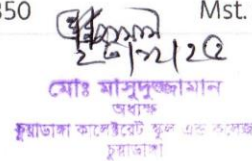 350 Mst.
২০/১২/২৫
মোঃ মাসুদুজ্জামান
অধ্যক্ষ
চুয়াডাঙ্গা কালেক্টরেট স্কুল এন্ড কলেজ
চুয়াডাঙ্গা